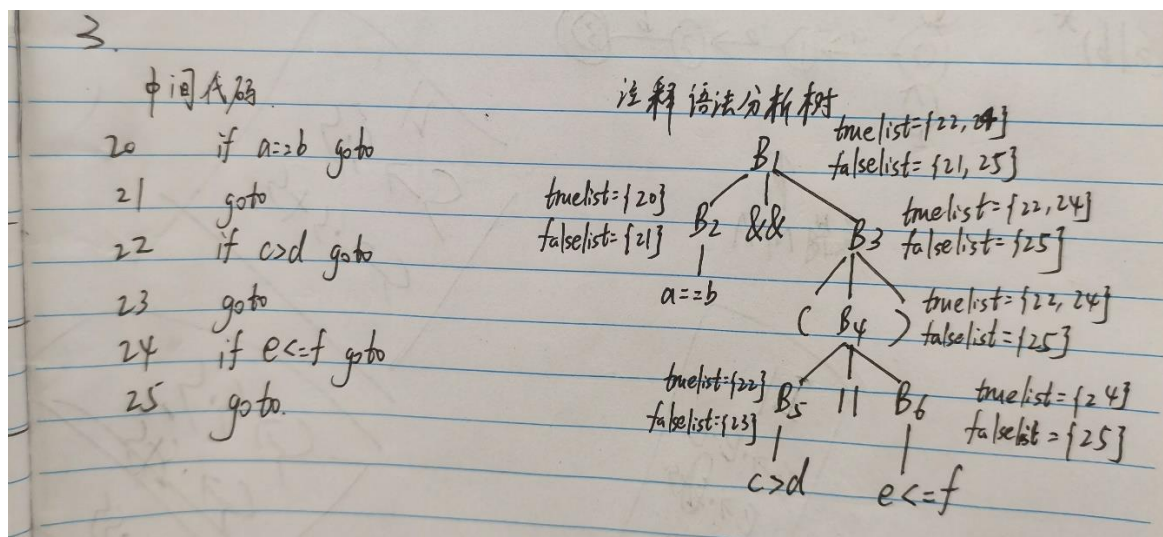 3.
中间代码
20 if a==b goto
21 goto
22 if c>d goto
23 goto
24 if e<=f goto
25 goto.
注释语法分析树
truelist={22,24}
B1 falselist={21,25}
truelist={20}
falselist={21}
B2 && B3
truelist={22,24}
falselist={25}
a==b
( B4 )
truelist={22,24}
falselist={25}
truelist={22}
falselist={23}
B5 || B6
truelist={24}
falselist={25}
c>d e<=f